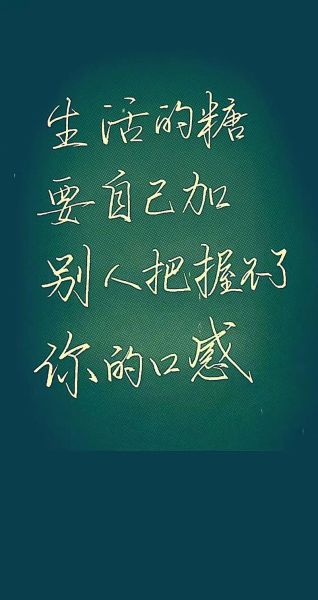 生活的糖
要自己加
别人把握不了
你的口感